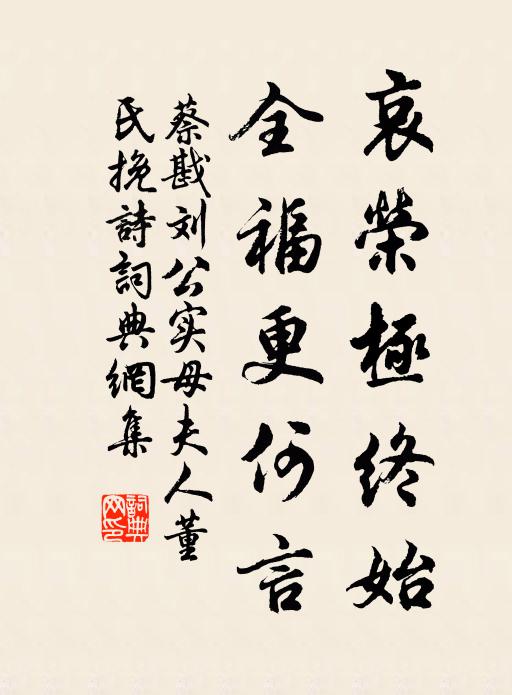 哀榮極终始
全福更何言
蔡戡刘公实母夫人董
氏挽詩詞典網集
詞典网印